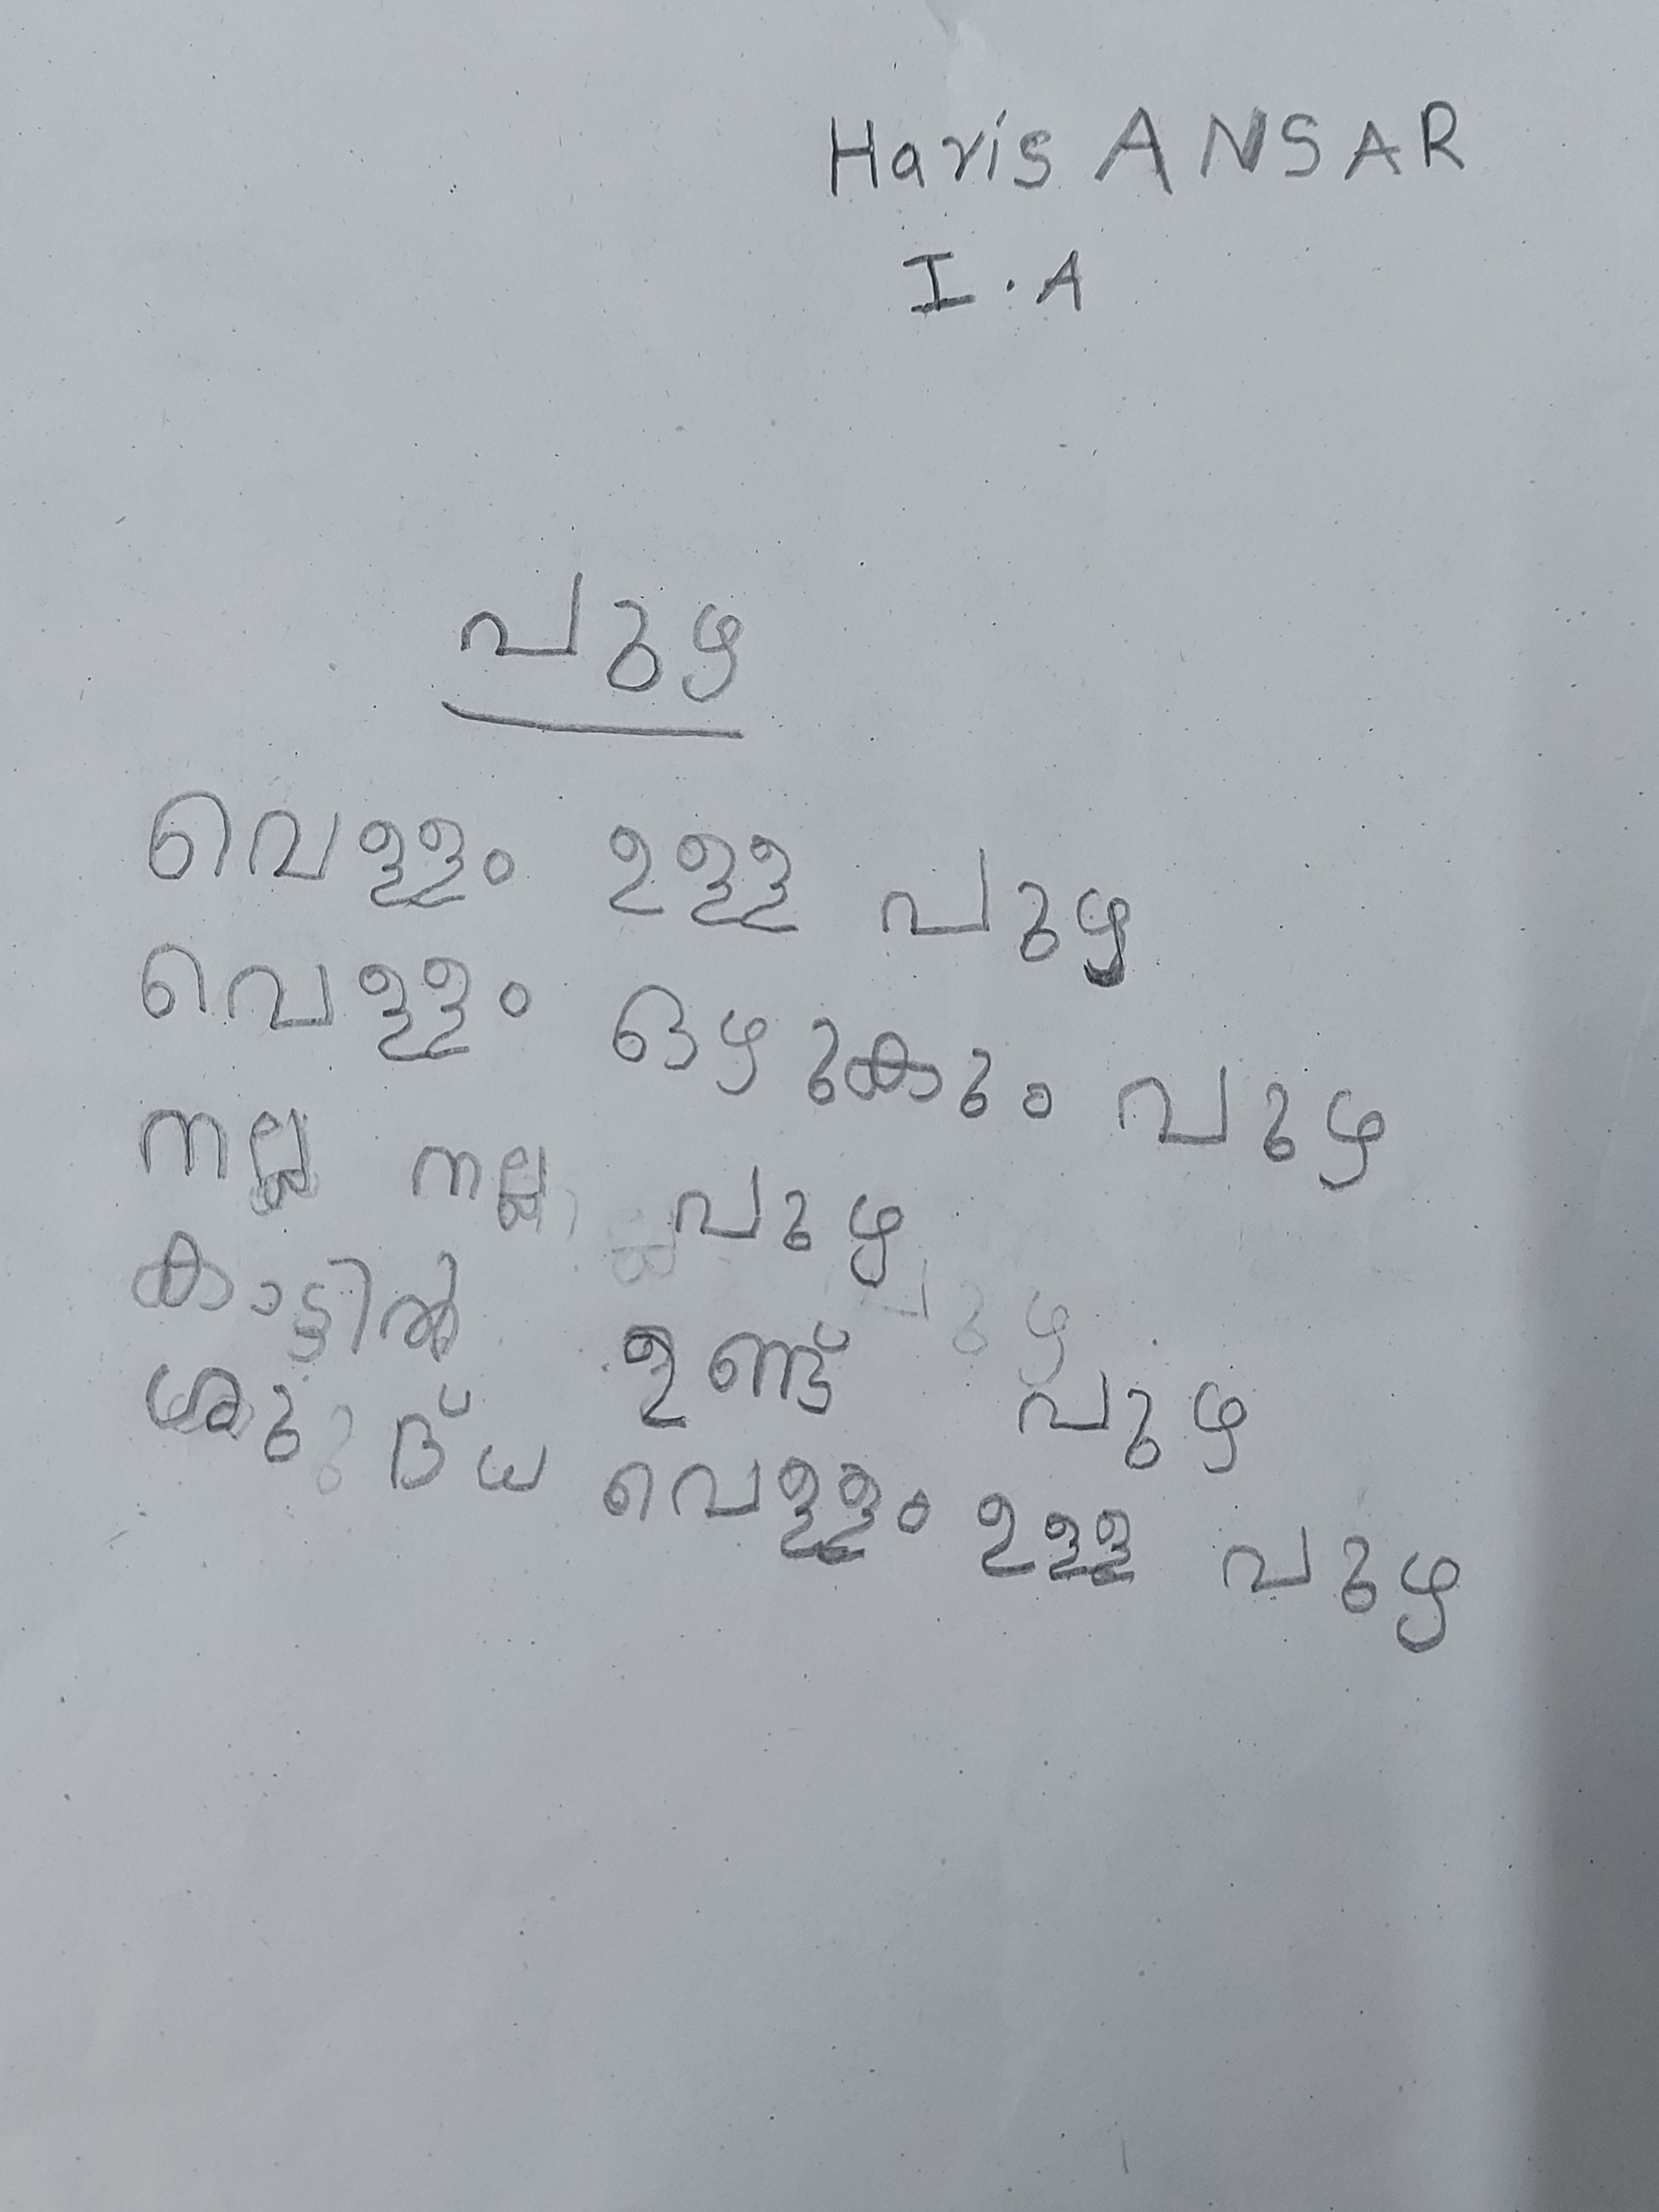 Haris ANSAR
I. A
പുഴ
വെള്ളം ഉള്ള പുഴ
വെള്ളം ഒഴുകും പുഴ
നല്ല നല്ല പുഴ
കാട്ടിൽ ഉണ്ട് പുഴ
ശുദ്ധ വെള്ളം ഉള്ള പുഴ